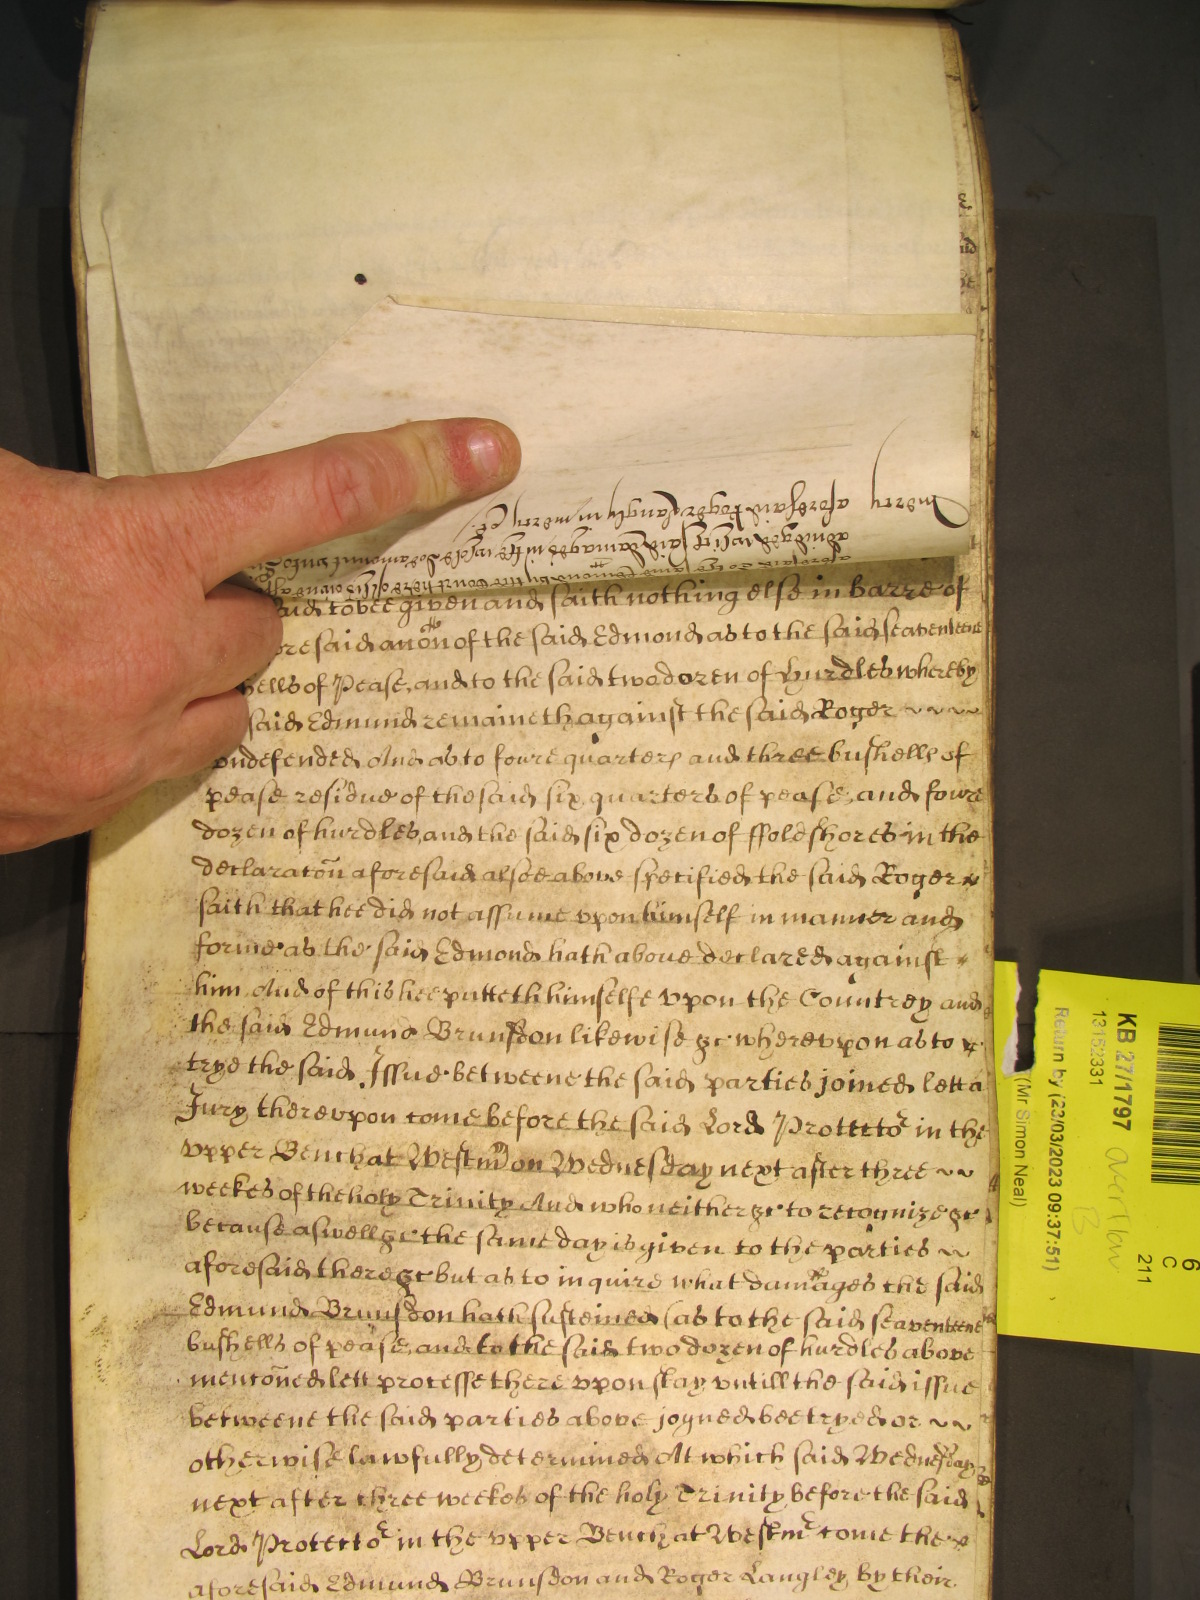 mercy
aforesaid Roger Langley in mercy &c
said to bee given and saith nothing else in barre of
aforesaid accon of the said Edmond as to the said seaventeene
bushells of Pease, and to the said two dozen of hurdles whereby
said Edmund remaineth against the said Roger
undefended And as to foure quarters and three bushells of
pease residue of the said six quarters of pease, and foure
dozen of hurdles, and the said six dozen of ffold shores in the
declaracon aforesaid alsoe above specified the said Roger
saith that hee did not assume upon himself in manner and
forme as the said Edmond hath above declared against
him And of this hee putteth himselfe upon the Countrey and
the said Edmund Brunsdon likewise &c whereupon as to
trye the said Issue betweene the said parties joined lett a
Jury thereupon come before the said Lord Protector in the
upper Bench at Westm on Wednesday next after three
weekes of the holy Trinity And who neither &c to recognize &c
because aswell &c the same day is given to the parties
aforesaid there &c but as to inquire what damages the said
Edmund Brunsdon hath susteined (as to the said seaventeene
bushells of pease, and to the said two dozen of hurdles above
menconed lett processe thereupon stay untill the said issue
betweene the said parties above joyned bee tryed or
otherwise lawfully determined At which said Wednesday
next after three weekes of the holy Trinity before the said
Lord Protector in the upper Bench at Westm come the
aforesaid Edmund Brunsdon and Roger Langley by their
KB 27/1797
13152331
Return by (23/03/2023 09:37:51)
(Mr Simon Neal)
overflow
B
6
C
211